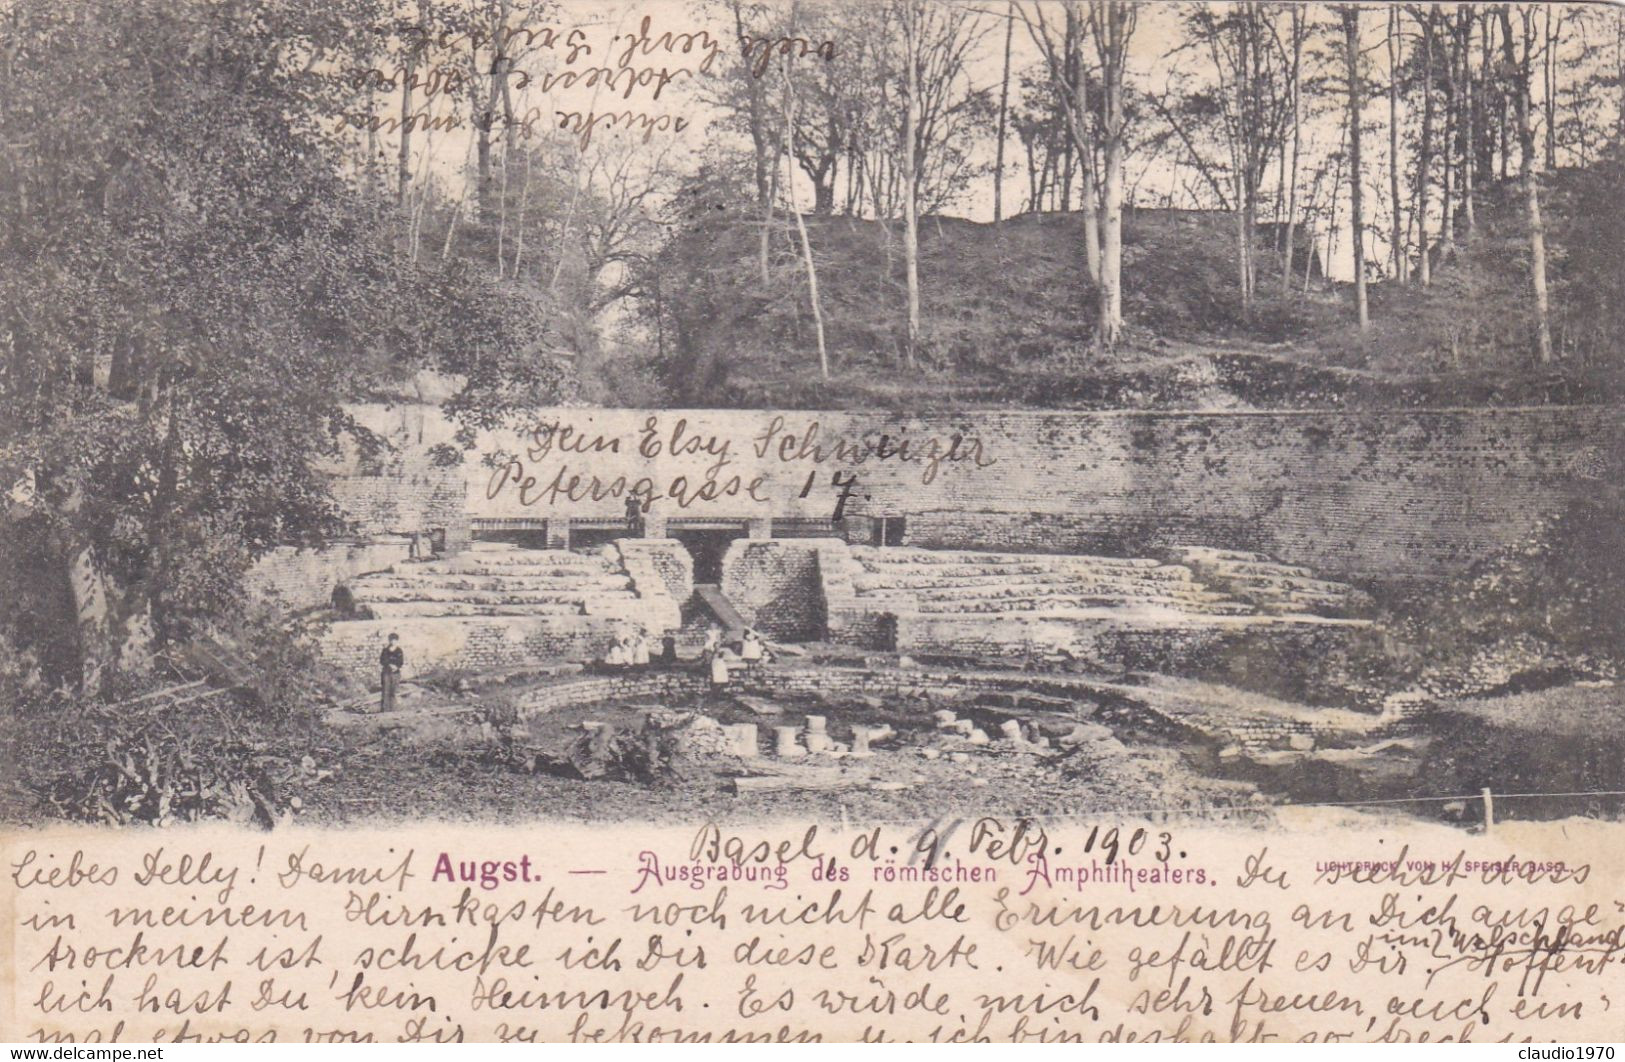 Basel, d. 9. Febr. 1903.
Augst. — Ausgrabung des römischen Amphitheaters.
LICHTDRUCK VON H. SPEISER BASEL.
Liebes Delly! Damit Du siehst dass
in meinem Hirnkasten noch nicht alle Erinnerung an Dich ausge-
trocknet ist, schicke ich Dir diese Karte. Wie gefällt es Dir im Welschland? Hoffent-
lich hast Du kein Heimweh. Es würde mich sehr freuen, auch ein-
mal etwas von Dir zu bekommen u. ich bin deshalb so frech u.
schicke dir meine
Adresse sowie
viele herzl. Grüsse
Dein Elsy Schweizer
Petersgasse 17.
claudio1970